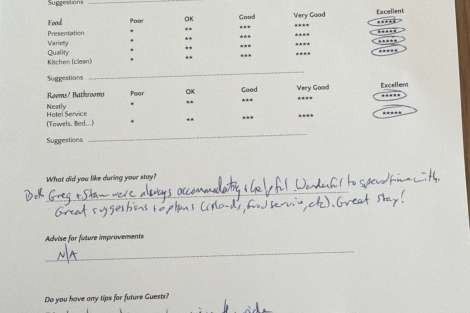 Suggestions
Food Poor OK Good Very Good Excellent
Presentation * ** *** **** *****
Variety * ** *** **** *****
Quality * ** *** **** *****
Kitchen (clean) * ** *** **** *****
Suggestions
Rooms/ Bathrooms Poor OK Good Very Good Excellent
Neatly * ** *** **** *****
Hotel Service
(Towels, Bed...) * ** *** **** *****
Suggestions
What did you like during your stay?
Both Greg + Shawn were always accommodating & helpful. Wonderful to spend time with.
Great suggestions + options (islands, food service, etc). Great stay!
Advise for future improvements
N/A
Do you have any tips for future Guests?